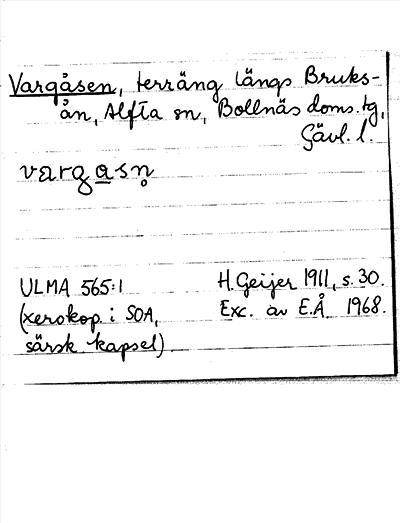 Vargåsen, terräng längs Bruks-
ån, Alfta sn, Bollnäs doms.tg,
Gävl. l.
vargasn̥
ULMA 565:1 H. Geijer 1911, s. 30.
(xerokop. i SOA, Exc. av E.Å 1968.
särsk. kapsel).